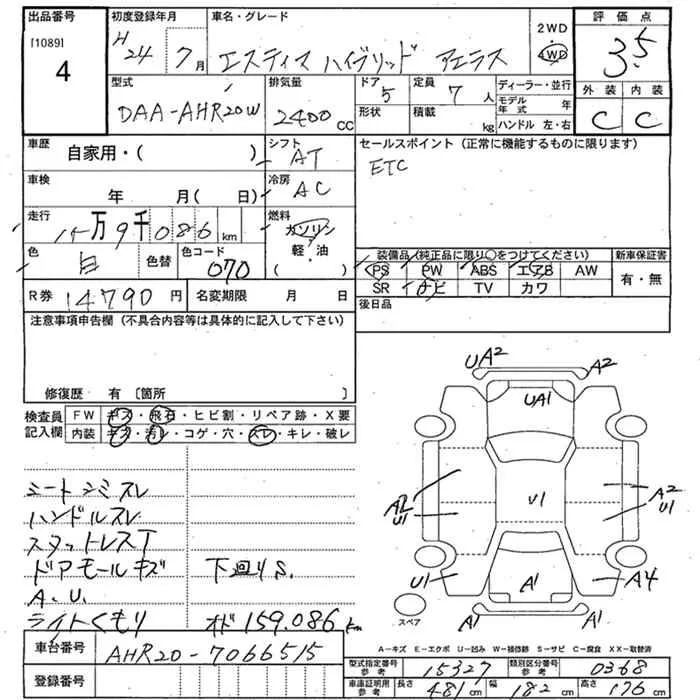 出品番号
[1089]
4
初度登録年月
H 24年 7月
車名・グレード
エスティマ ハイブリッド アエラス
2WD
4WD
評価点
3.5
外装 内装
C C
型式
DAA-AHR20W
排気量
2400 CC
ドア
5
形状
定員
7人
積載
kg
ディーラー・並行
モデル年式 年
ハンドル 左・右
車歴
自家用・( )
シフト
AT
セールスポイント (正常に機能するものに限ります)
ETC
車検
年 月( 日)
冷房
AC
走行
15万9千086km
燃料
ガソリン
軽・油
( )
色
白
色替
色コード
070
装備品 (純正品に限り○をつけてください)
PS PW ABS エアB AW
SR ナビ TV カワ
新車保証書
有・無
R券 14790円
名変期限 月 日
後日品
注意事項申告欄 (不具合内容等は具体的に記入して下さい)
修復歴 有 [箇所 ]
検査員記入欄
FW キズ・飛石・ヒビ割・リペア跡・X要
内装 キズ・汚レ・コゲ・穴・スレ・キレ・破レ
シートシミスレ
ハンドルスレ
スタットレスT
ドアモールキズ 下回りS.
A.U.
ライトくもり オド159.086km
UA2 A2
UA1
A2 U1
U1
A2 U1
U1
A1
A4
A1 A1
スペア
A-キズ E-エクボ U-凹み W-補修跡 S-サビ C-腐食 XX-取替済
車台番号 AHR20-7066515
登録番号
型式指定番号 参考 15327
類別区分番号 参考 0368
車庫証明用 参考
長さ 481cm
幅 182cm
高さ 176cm